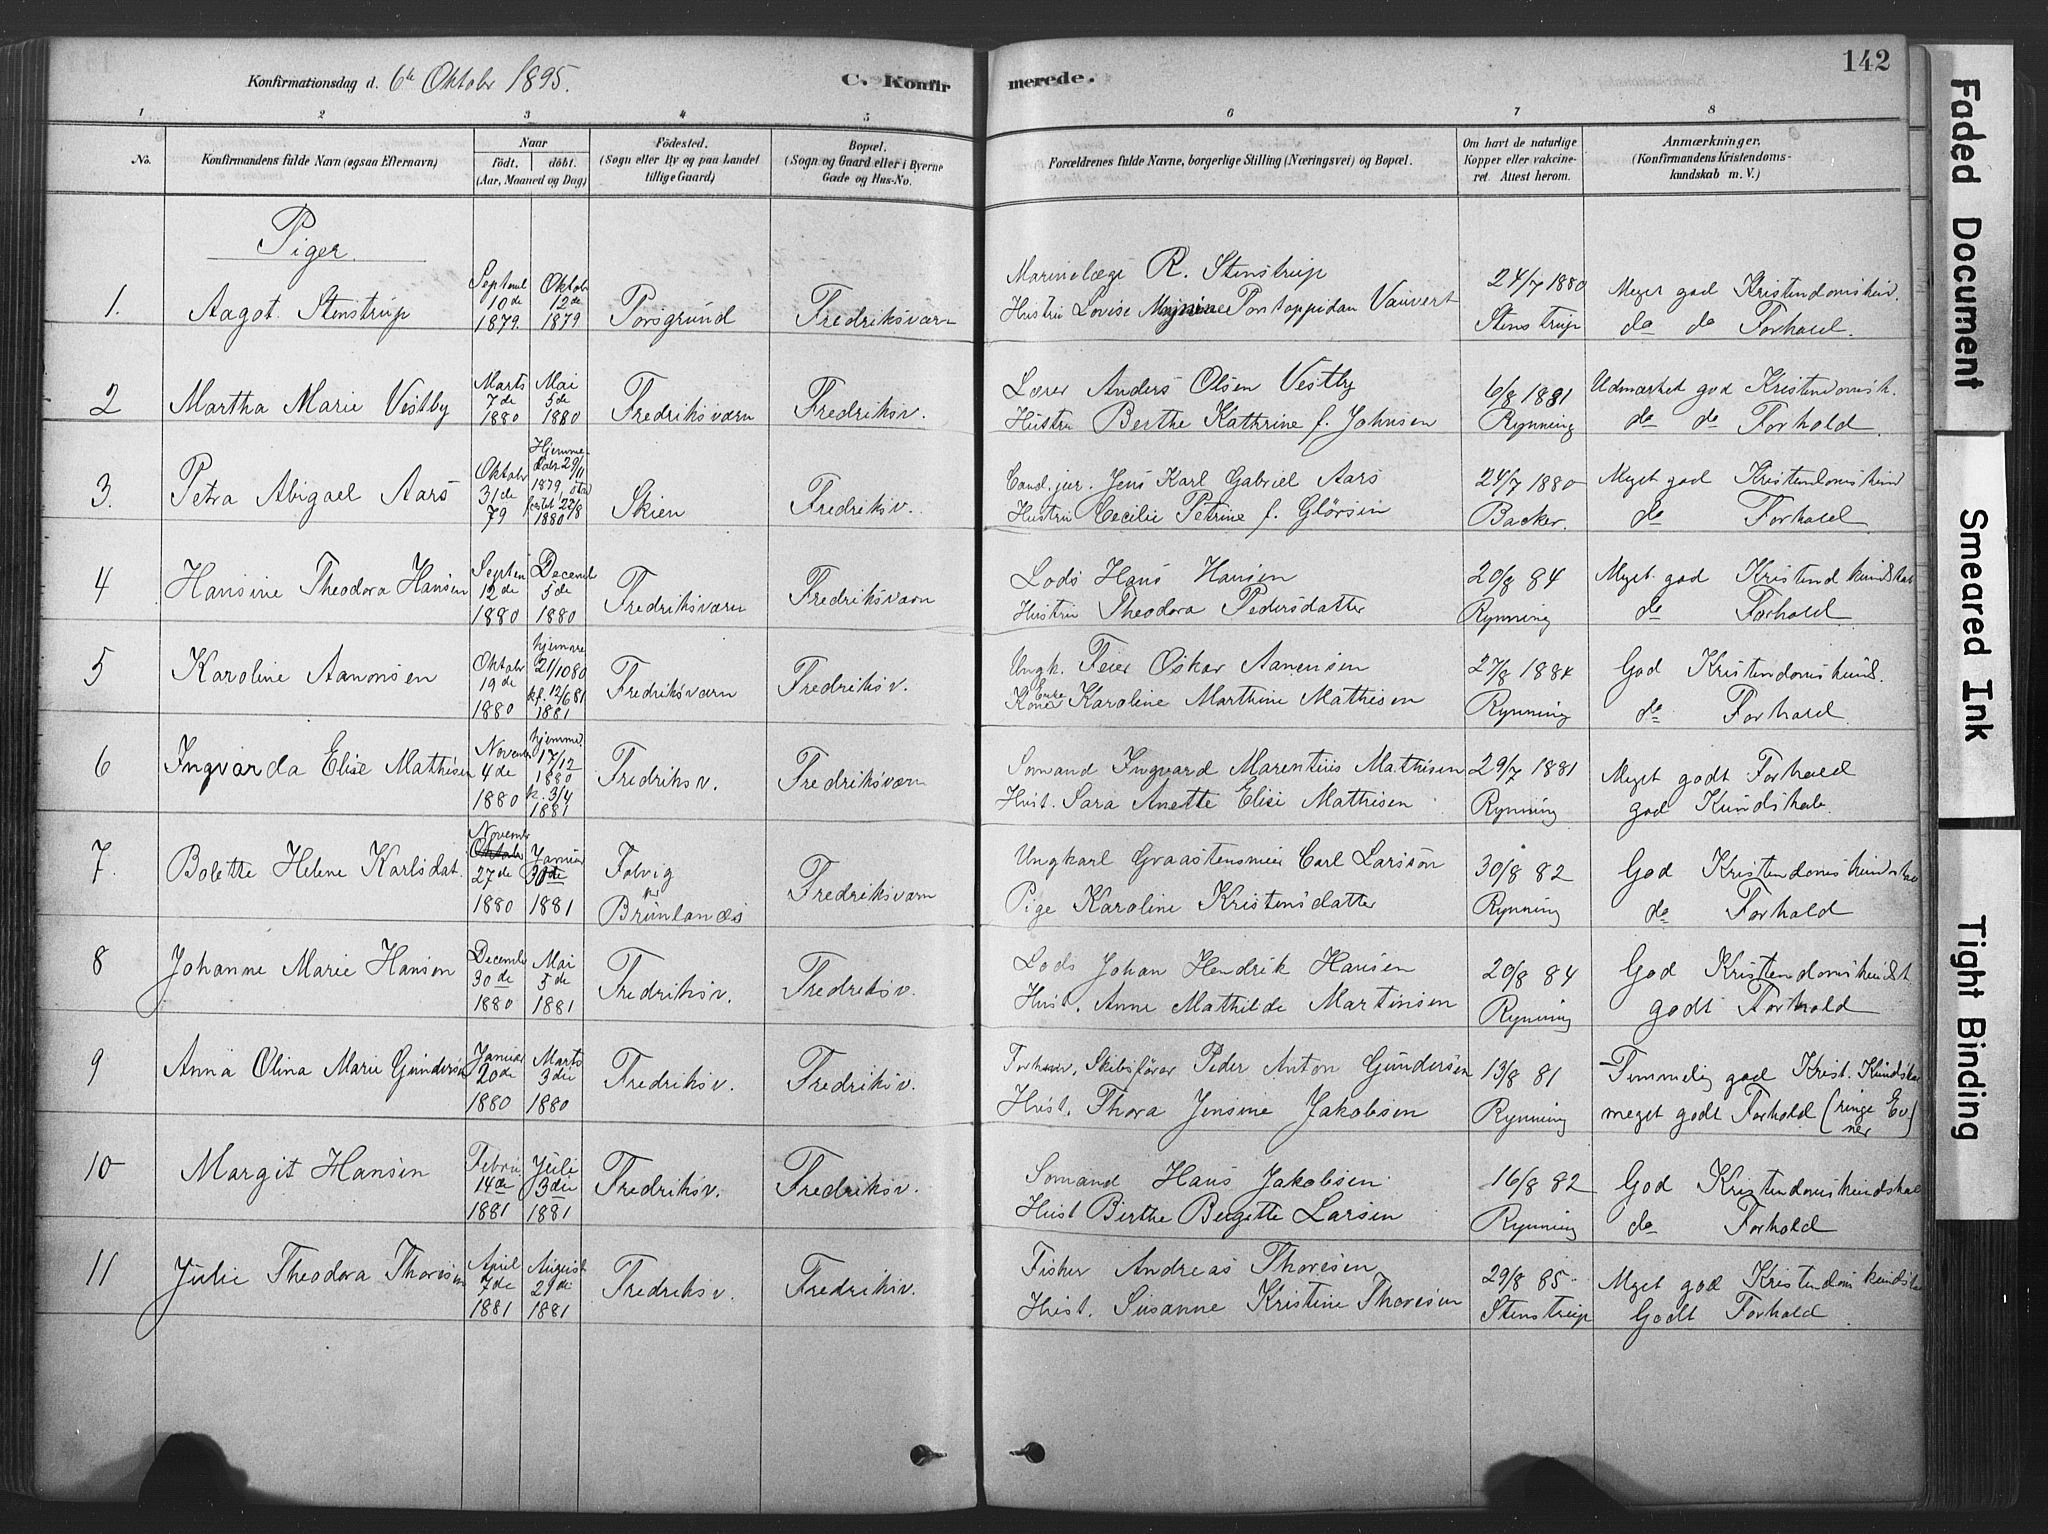 Konfirmationsdag d. 6te Oktober 1895.
C. Konfirmerede.
142
1 2 3 4 5 6 7 8
No.
Konfirmandens fulde Navn (ogsaa Efternavn)
Naar
Födt. döbt.
(Aar, Maaned og Dag)
Födested.
(Sogn eller By og paa Landet
tillige Gaard)
Bopæl.
(Sogn og Gaard eller i Byerne
Gade og Hus-No.
Forældrenes fulde Navne, borgerlige Stilling (Næringsvei) og Bopæl.
Om havt de naturlige
Kopper eller vakcine-
ret. Attest herom.
Anmærkninger.
(Konfirmandens Kristendoms-
kundskab m. V.)
Piger.
1. Aagot Stenstrup
Septembr 10de 1879.
Oktobr 12de 1879
Porsgrund
Fredriksværn
Marinelæge R. Stenstrup
Hustru Lovise Pontoppidan Vauvert
24/7 1880
Stenstrup
Meget god Kristendomskun.
do do Forhold.
2 Martha Marie Vestby
Marts 7de 1880
Mai 5de 1880
Fredriksværn
Fredriksv.
Lærer Anders Olsen Vestby
Hustru Berthe Kathrine f. Johnsen
6/8 1881
Rynning
Udmærket god Kristendomsk.
do do Forhold.
3. Petra Abigael Aars
Oktobr 31de 79
Hjemmedøbt 29/11 1879, stadfæstet 22/8 1880
Skien
Fredriksv.
Cand. jur. Jens Karl Gabriel Aars
Hustru Cecilie Petrine f. Glörsen
24/7 1880
Backer.
Meget god Kristendomskund
do Forhold
4 Hansine Theodora Hansen
Septem 12de 1880
Decemb 5de 1880
Fredriksværn
Fredriksværn
Lods Hans Hansen
Hustru Theodora Pedersdatter
20/8 84
Rynning
Meget god Kristendkundskab
do Forhold
5 Karoline Aanonsen
Oktobr 19de 1880
hjemme 21/10 80 kf. 12/6 81 1881
Fredriksværn
Fredriksv.
Ungk. Feier Oskar Aanensen
Enke
Kone Karoline Marthine Mathisen
27/8 1884
Rynning
God Kristendomskund.
do Forhold.
6 Ingvarda Elise Mathisen
Novembr 4de 1880
hjemme 17/12 1880 k. 3/4 1881
Fredriksv.
Fredriksværn
Sömand Ingvard Marentius Mathisen
Hust. Sara Anette Elise Mathisen
29/7 1881
Rynning
Meget godt Forhold
god Kundskab.
7. Bolette Helene Karlsdat.
Novembr Oktober 27de 1880
Januar 30de 1881
Folvig pr Brunlanæs
Fredriksværn
Ungkarl Graastensmin Carl Larsson
Pige Karoline Kristensdatter
30/8 82
Rynning
God Kristendomskundskab
do Forhold
8 Johanne Marie Hansen
Decembr 30de 1880
Mai 5de 1881
Fredriksv.
Fredriksv.
Lods Johan Hendrik Hansen
Hust. Anne Mathilde Martinsen
20/8 84
Rynning
God Kristendomskundst
godt Forhold
9 Anna Olina Marie Gundersen
Januar 20de 1880
Marts 3die 1880
Fredriksv.
Fredriksv.
Forhenv. Skibsförer Peder Anton Gundersen
Hust. Thora Jensine Jakobsen
13/8 81
Rynning
Temmelig god Krist. Kundskab
meget godt Forhold (ringe Evner)
10 Margit Hansen
Febru. 14de 1881
Juli 3die 1881
Fredriksv.
Fredriksv.
Sömand Hans Jakobsen
Hust Birthe Birgitte Larsen
16/8 82
Rynning
God Kristendomskundskab
do Forhold
11 Julie Theodora Thorisen
April 7de 1881
August 29de 1881
Fredriksv.
Fredriksv.
Fisker Andreas Thorisen
Hust. Susanne Kristine Thorisen
29/8 85
Stenstrup
Meget god Kristendomskundskab
Godt Forhold.
Faded Document
Smeared Ink
Tight Binding